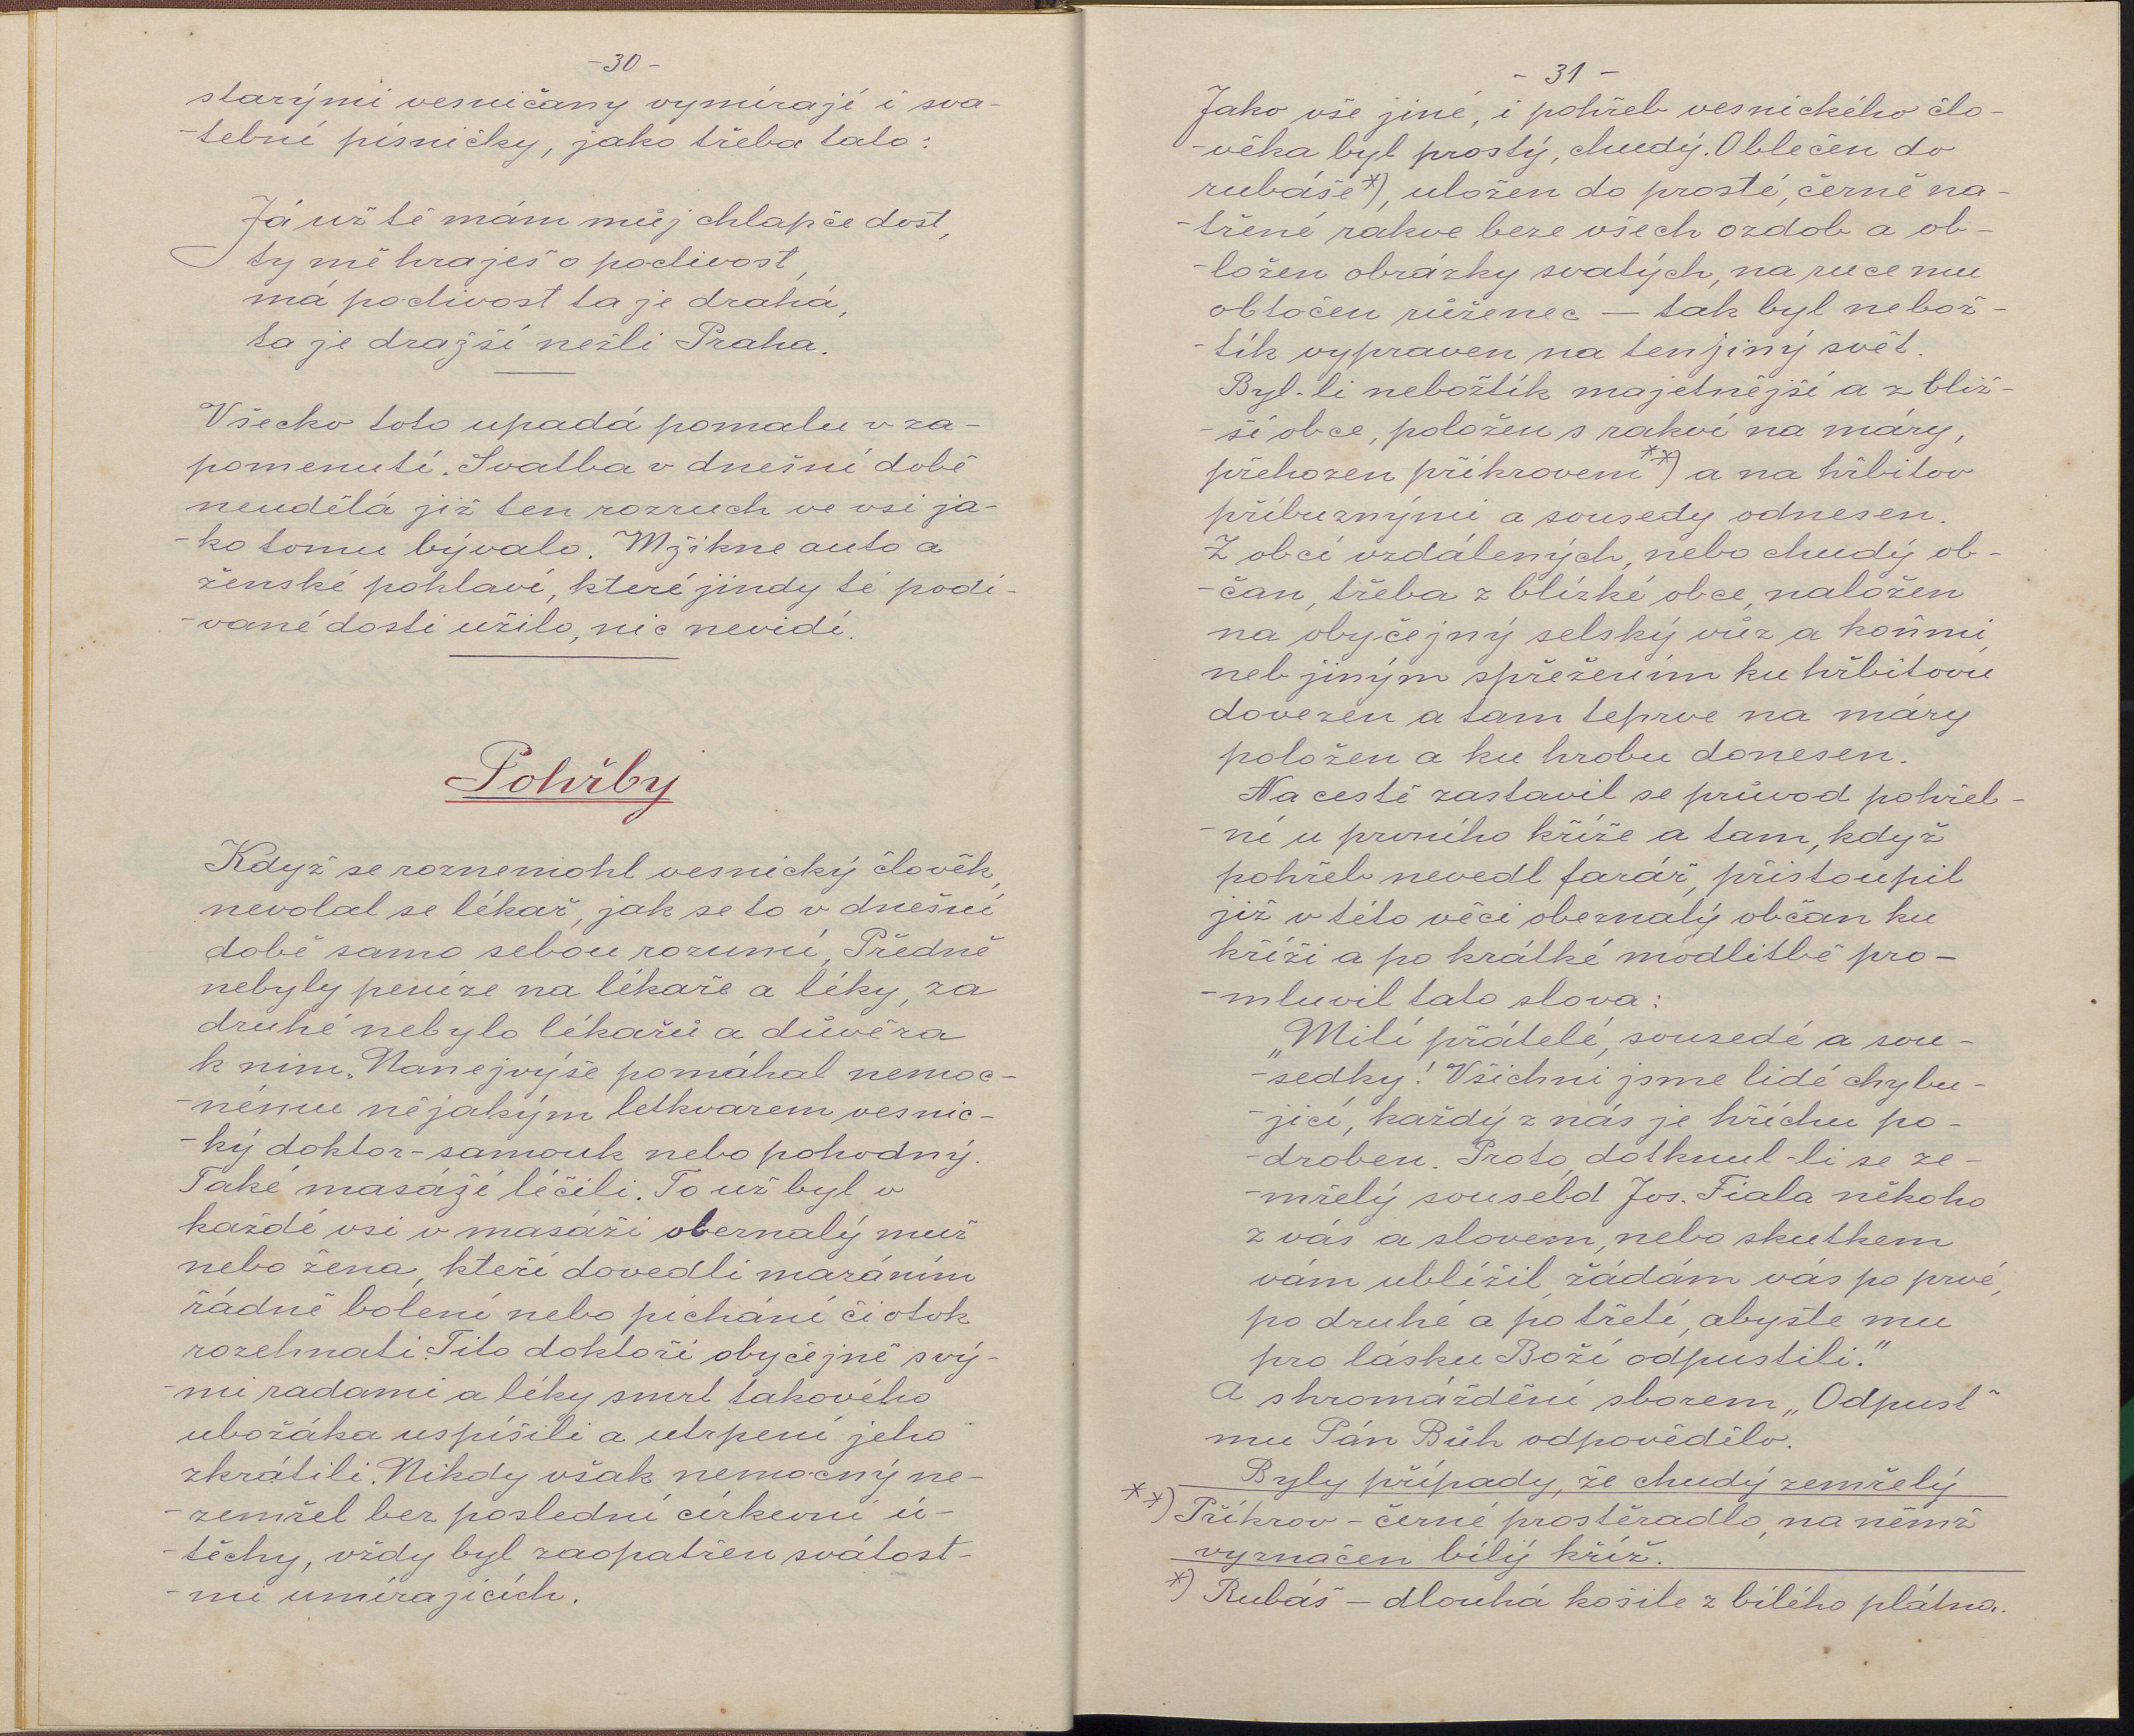 -30-
starými vesničany vymírají i sva-
-tební písničky, jako třeba tato:
Já už tě mám můj chlapče dost,
ty mě hraješ o poctivost,
má poctivost ta je drahá,
ta je dražší nežli Praha.
Všecko toto upadá pomalu v za-
pomenutí. Svatba v dnešní době
neudělá již ten rozruch ve vsi ja-
-ko tomu bývalo. Mžikne auto a
ženské pohlaví, které jindy té podí-
-vané dosti užilo, nic nevidí.
Pohřby
Když se roznemohl vesnický člověk,
nevolal se lékař, jak se to v dnešní
době samo sebou rozumí, Předně
nebyly peníze na lékaře a léky, za
druhé nebylo lékařů a důvěra
k nim. Nanejvýše pomáhal nemoc-
-nému nějakým letkvarem vesnic-
-ký doktor-samouk nebo pohodný.
Také masáží léčili. To už byl v
každé vsi v masáži obeznalý muž
nebo žena, kteří dovedli mazáním
řádně bolení nebo píchání či otok
rozehnati. Tito doktoři obyčejně svý-
-mi radami a léky smrt takového
ubožáka uspíšili a utrpení jeho
zkrátili. Nikdy však nemocný ne-
-zemřel bez poslední církevní ú-
-těchy, vždy byl zaopatřen svátost-
-mi umírajících.
- 31 -
Jako vše jiné, i pohřeb vesnického člo-
-věka byl prostý, chudý. Oblečen do
rubáše*), uložen do prosté, černě na-
-třené rakve beze všech ozdob a ob-
-ložen obrázky svatých, na ruce mu
obtočen růženec — tak byl nebož-
-tík vypraven na ten jiný svět.
Byl-li nebožtík majetnější a z bliž-
-ší obce, položen s rakví na máry,
přehozen příkrovem**) a na hřbitov
příbuznými a sousedy odnesen.
Z obcí vzdálených, nebo chudý ob-
-čan, třeba z blízké obce, naložen
na obyčejný selský vůz a koňmi,
neb jiným spřežením ku hřbitovu
dovezen a tam teprve na máry
položen a ku hrobu donesen.
Na cestě zastavil se průvod pohřeb-
-ní u prvního kříže a tam, když
pohřeb nevedl farář, přistoupil
již v této věci obeznalý občan ku
kříži a po krátké modlitbě pro-
-mluvil tato slova:
„Milí přátelé, sousedé a sou-
-sedky! Všichni jsme lidé chybu-
-jící, každý z nás je hříchu po-
-droben. Proto, dotknul-li se ze-
-mřelý souseld Jos. Fiala někoho
z vás a slovem, nebo skutkem
vám ublížil, žádám vás po prvé,
po druhé a po třetí, abyste mu
pro lásku Boží odpustili."
A shromáždění sborem „Odpusť
mu Pán Bůh odpovědělo.
Byly případy, že chudý zemřelý
**) Příkrov - černé prostěradlo, na němž
vyznačen bílý kříž.
*) Rubáš — dlouhá košile z bílého plátna.